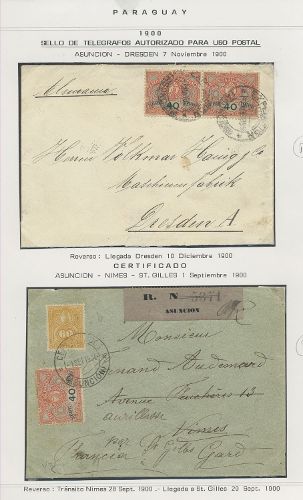 PARAGUAY
1900
SELLO DE TELEGRAFOS AUTORIZADO PARA USO POSTAL
ASUNCION - DRESDEN 7 Noviembre 1900
40 40
Alemania
Herren Volkmar Hänig & Co
Maschinenfabrik
Dresden A
Reverso: Llegada Dresden 10 Diciembre 1900
CERTIFICADO
ASUNCION - NIMES - ST. GILLES 1 Septiembre 1900
R. N
ASUNCION
60
Monsieur
Fernand Audemard
40
Avenue Feuchères 13
Nimes
par St Gilles Gard
Francia
Reverso: Tránsito Nimes 28 Sept. 1900 - Llegada a St. Gilles 29 Sept. 1900